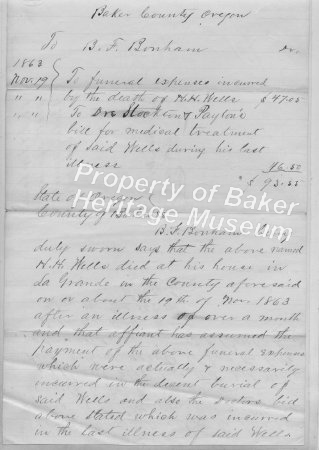 Baker County Oregon
To B. F. Bonham Dr.
1863
Nov. 19 To funeral expenses incurred
" " by the death of H. H. Wells $47.00
" " To Drs & Payton's
bill for medical treatment
of said Wells during his last
illness 46.50
$93.
State of Oregon
County of
B. F. Bonham being
duly sworn says that the above named
H. H. Wells died at his house in
La Grande in the County aforesaid
on or about the 19th of Nov. 1863
after an illness of over a month
and that affiant has assumed the
payment of the above funeral expenses
which were actually & necessarily
incurred in the decent burial of
said Wells and also the Doctors bill
above stated which was incurred
in the last illness of said Wells
Property of Baker
Heritage Museum